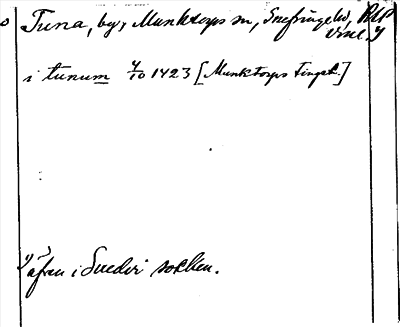 Tuna, by, Munktorps sn, Snefringe hd, RAP
i tunum 4/10 1423 [Munktorps tingst.]
även i Svedvi socken.